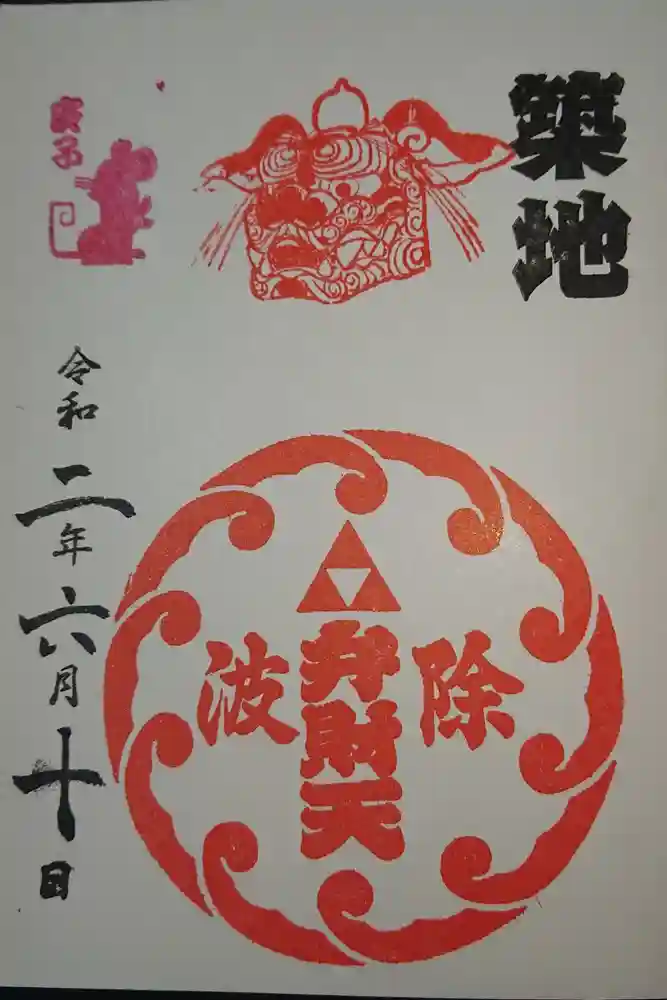 築地
庚子
除波
弁財天
令和二年六月十日